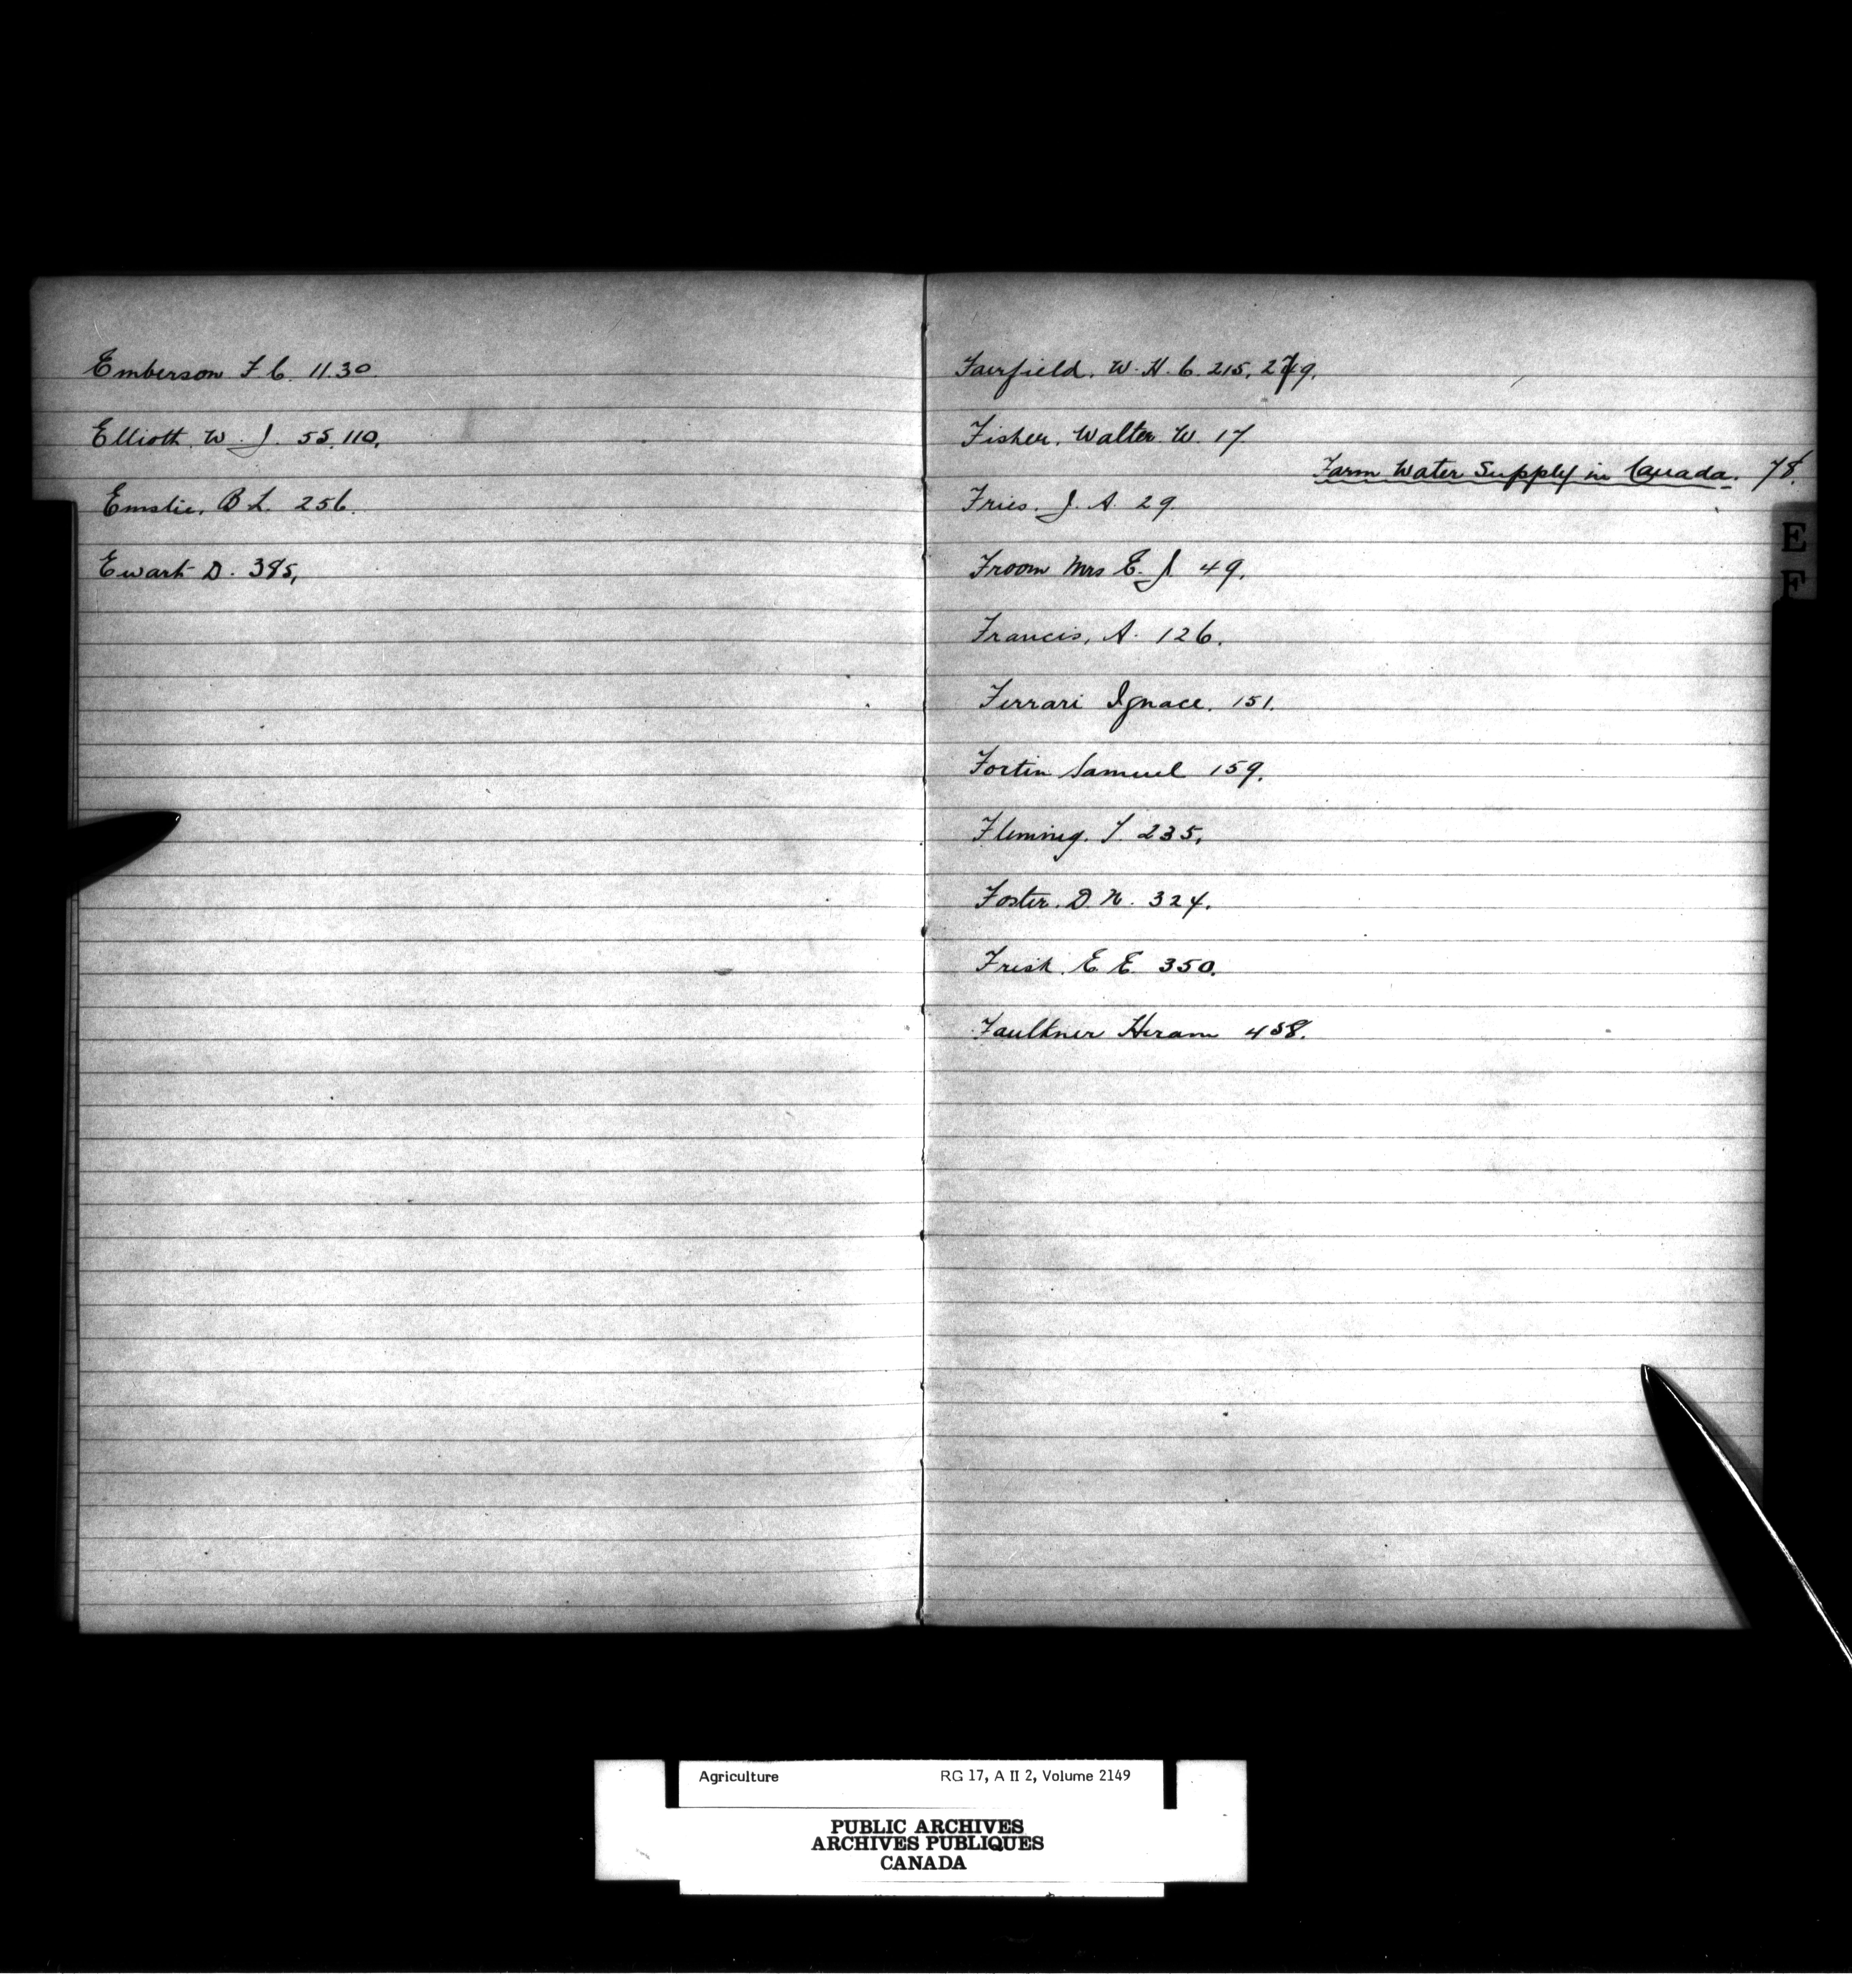 Emberson F. C. 11.30.
Elliott. W. J. 55, 110.
Emslie. B. L. 256.
Ewart D. 385,
Fairfield. W. H. C. 215,
Fisher. Walter W. 17
Farm Water Supply in Canada. 78.
Fries. J. A. 29.
Froom Mrs E. J. 49.
Francis, A. 126.
Ferrari Ignace. 151.
Fortin Samuel 159.
Fleming. T. 235,
Foster. D. N. 324.
Frisk. E. E. 350.
Faulkner Hiram 458.
E
F
Agriculture RG 17, A II 2, Volume 2149
PUBLIC ARCHIVES
ARCHIVES PUBLIQUES
CANADA